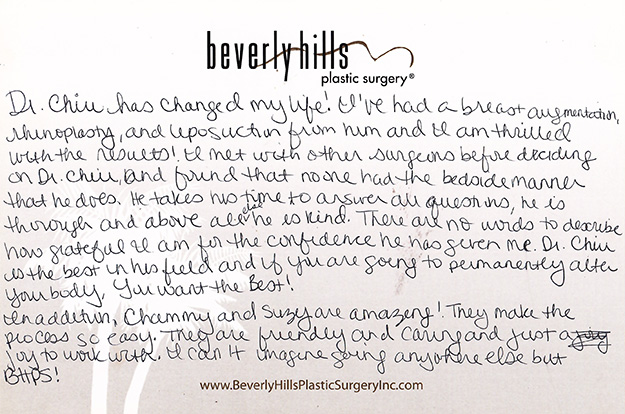 beverly hills
plastic surgery®
Dr. Chiu has changed my life! I've had a breast augmentation,
rhinoplasty, and liposuction from him and I am thrilled
with the results! I met with other surgeons before deciding
on Dr. Chiu, and found that no one had the bedside manner
that he does. He takes his time to answer all questions, he is
thorough and above all else he is kind. There are no words to describe
how grateful I am for the confidence he has given me. Dr. Chiu
is the best in his field and if you are going to permanently alter
your body, you want the Best!
In addition, Chammy and Suzy are amazing! They make the
process so easy. They are friendly and caring and just a
joy to work with. I can't imagine going anywhere else but
BHPS!
www.BeverlyHillsPlasticSurgeryInc.com